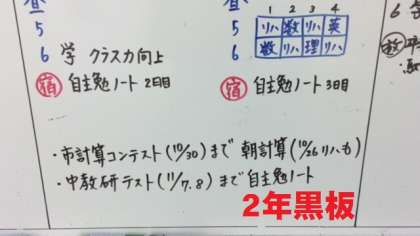 昼
5
6 学 クラス力向上
宿 自主勉ノート 2日目
昼
5
6
1 2 3 4
リハ 数 リハ 英
数 リハ 理 リハ
宿 自主勉ノート 3日目
6
・市計算コンテスト(10/30)まで 朝計算(10/26リハも)
・中教研テスト(11/7.8)まで自主勉ノート
2年黒板